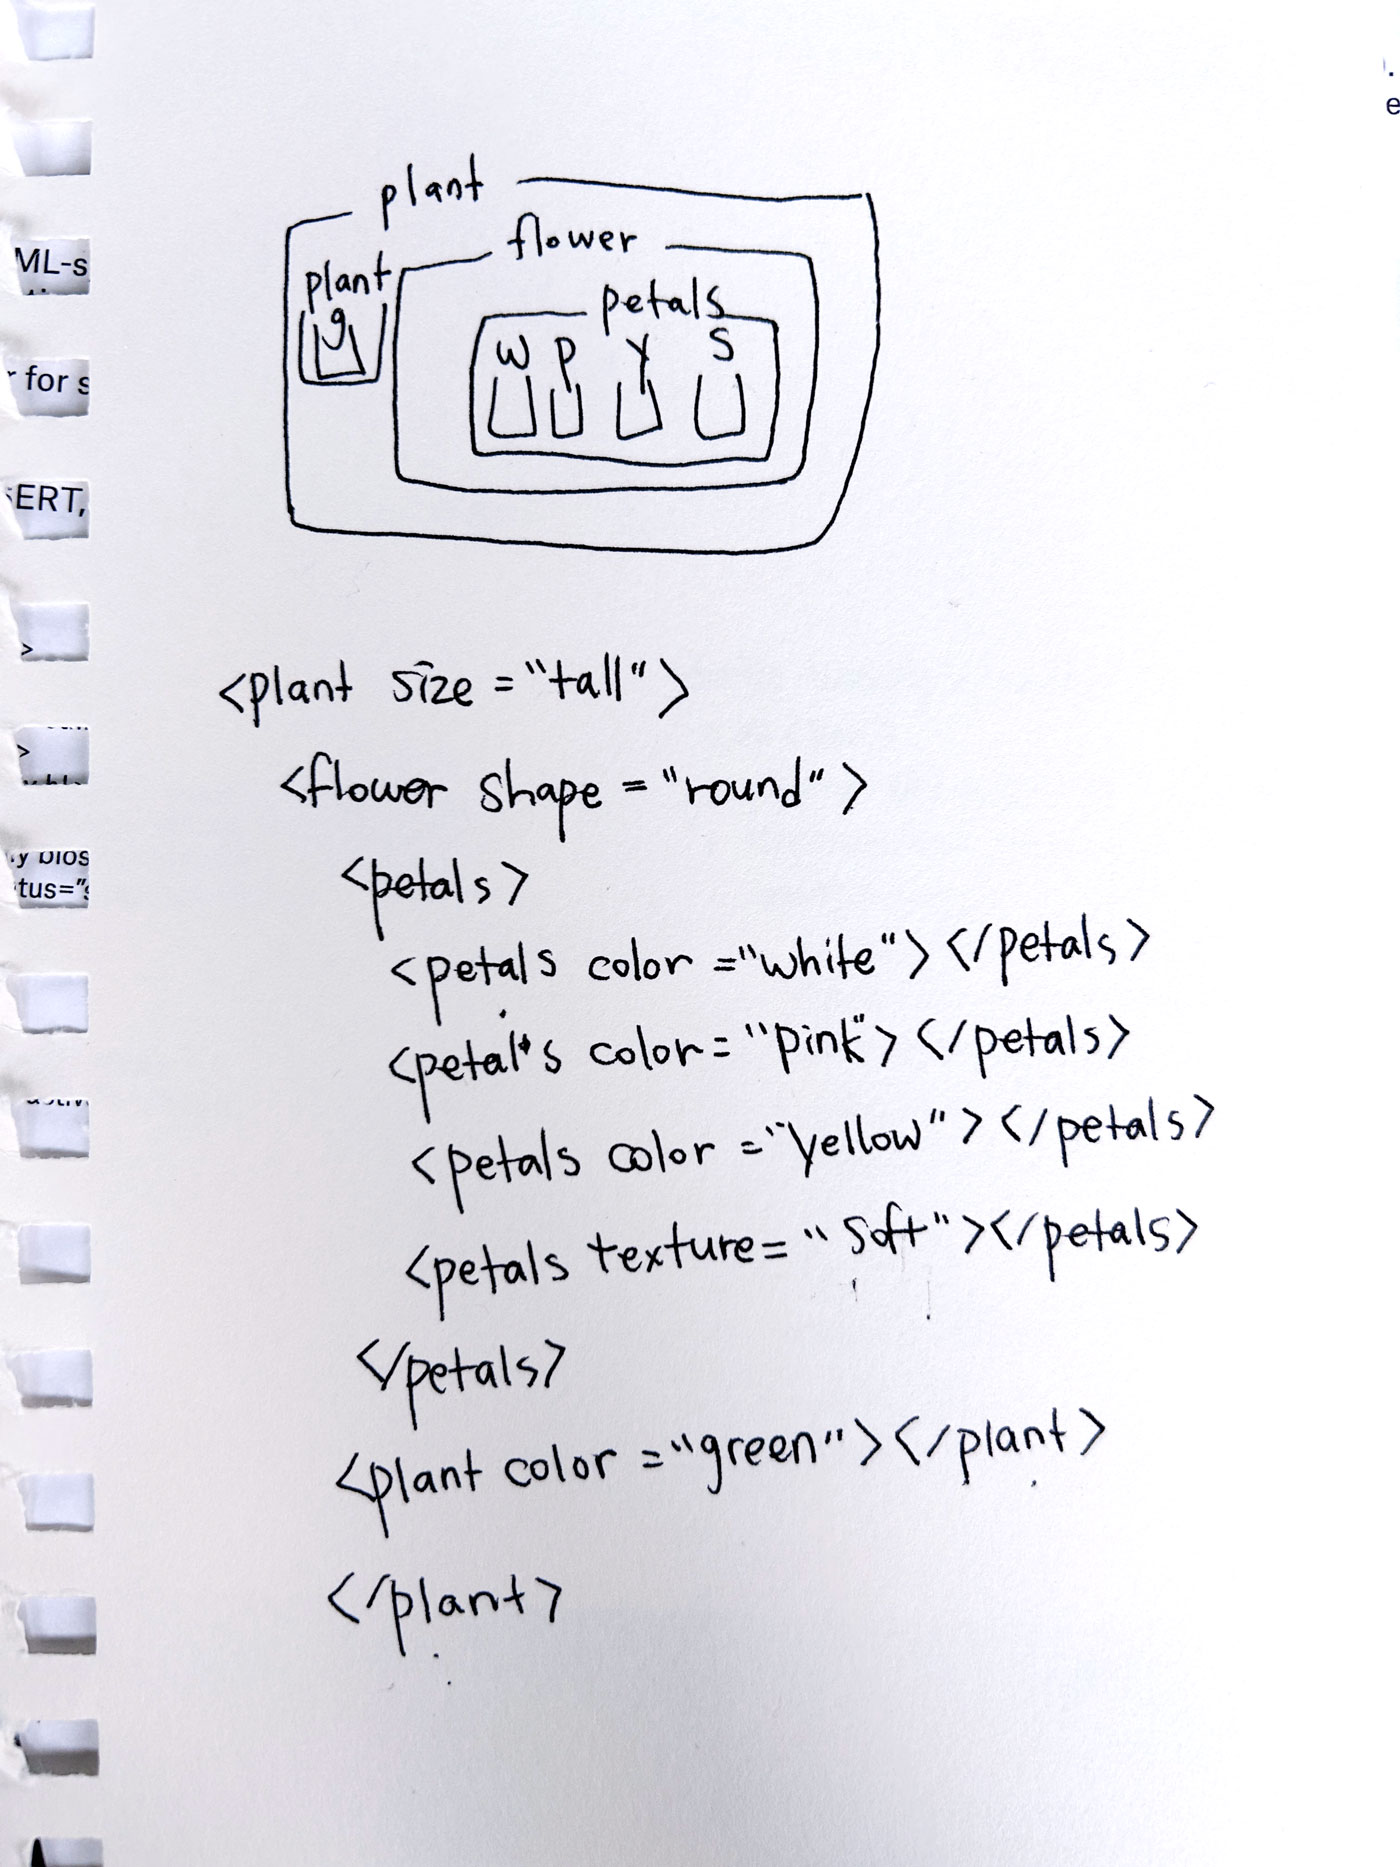 plant
flower
plant
petals
g
W P Y S
<plant size="tall">
<flower shape="round">
<petals>
<petals color="white"></petals>
<petals color="pink"></petals>
<petals color="yellow"></petals>
<petals texture="soft"></petals>
</petals>
<plant color="green"></plant>
</plant>
ML-s
r for s
ERT,
>
>
y blos
tus="
e